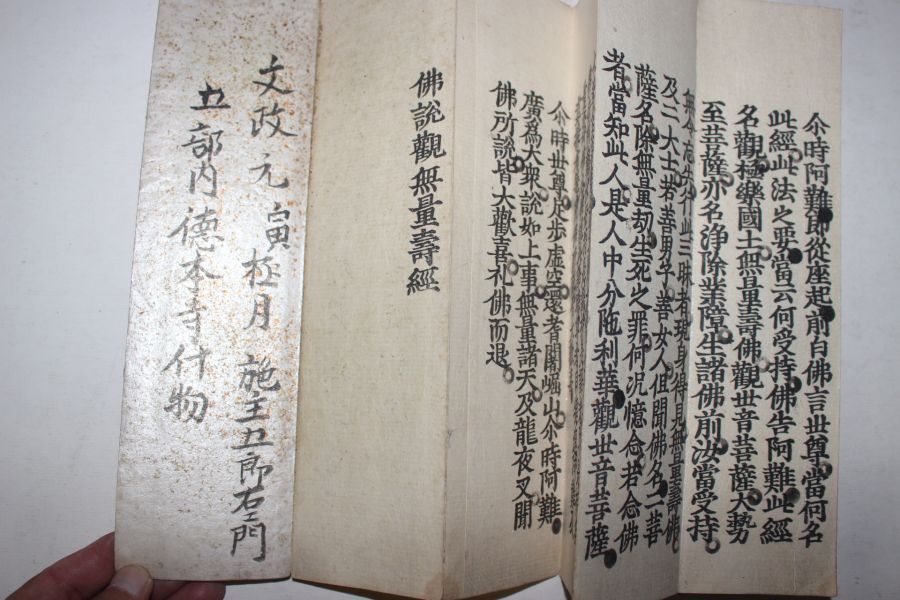 尒時阿難即從座起前白佛言世尊當何名
此經此法之要當云何受持佛告阿難此經
名觀極樂國土無量壽佛觀世音菩薩大勢
至菩薩亦名淨除業障生諸佛前汝當受持
無令忘失行此三昧者現身得見無量壽佛
及二大士若善男子善女人但聞佛名二菩
薩名除無量劫生死之罪何況憶念若念佛
者當知此人是人中分陁利華觀世音菩薩
尒時世尊足步虛空還耆闍崛山尒時阿難
廣為大衆說如上事無量諸天及龍夜叉聞
佛所說皆大歡喜礼佛而退
佛說觀無量壽經
文政元寅極月 施主五郎右エ門
五部内德本寺什物